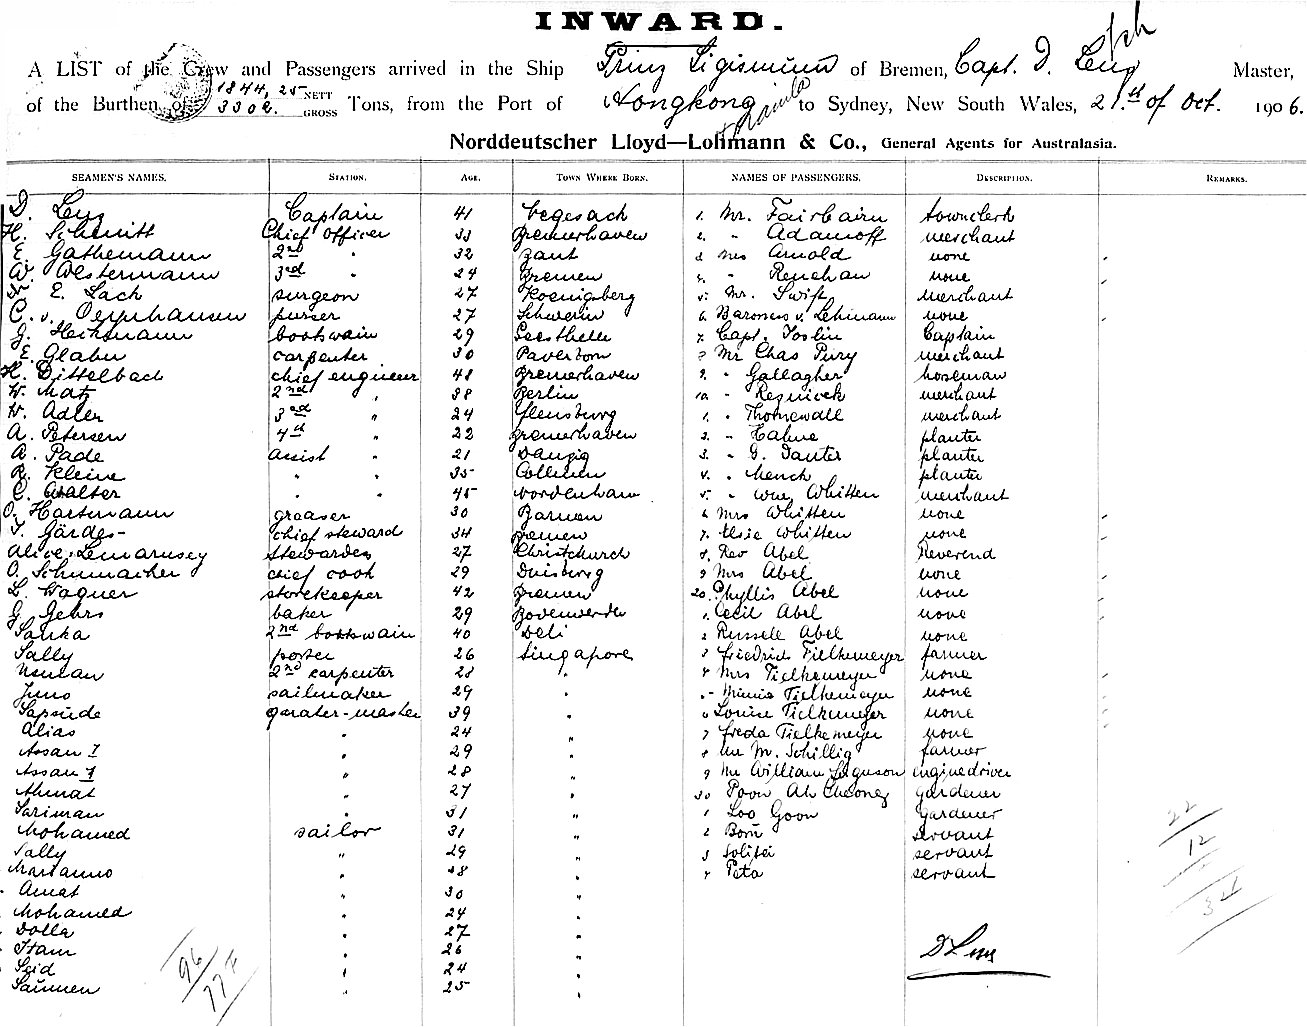 INWARD.
A LIST of the Crew and Passengers arrived in the Ship Prinz Sigismund of Bremen, Capt. D. Lenz Master,
of the Burthen of 1844,25 NETT 3302. GROSS Tons, from the Port of Hongkong & Manila to Sydney, New South Wales, 21st of Oct. 1906.
Norddeutscher Lloyd—Lohmann & Co., General Agents for Australasia.
SEAMEN'S NAMES. STATION. AGE. TOWN WHERE BORN. NAMES OF PASSENGERS. DESCRIPTION. REMARKS.
D. Lenz Captain 41 Vegesack 1. Mr. Fairbairn townclerk
H. Schmitt Chief Officer 33 Bremerhaven 2. " Adamoff merchant
E. Gathemann 2nd " 32 Zant 3 Mrs Arnold none
W. Westermann 3rd " 24 Bremen 4. " Renehan none
Dr. E. Lach surgeon 27 Koenigsberg 5. Mr. Swift merchant
C. v. Oeynhausen purser 27 Schwerin 6. Baroness v. Lehmann none
J. Heitmann boatswain 29 Geesthelle 7. Capt. Joslin Captain
E. Glaber carpenter 30 Paverborn 8 Mr Chas Pury merchant
H. Dittelbach chief engineer 48 Bremerhaven 9. " Gallagher horseman
W. Matz 2nd " 38 Berlin 10. " Resnicek merchant
W. Adler 3rd " 24 Flensburg 1. " Thornewall merchant
A. Petersen 4th " 22 Bremerhaven 2. " Hahne planter
A. Pade assist " 21 Danzig 3. " G. Sauter planter
R. Kleine " " 35 4. " Mench planter
C. Walter " " 45 Nordenham 5. " Wm Whitten merchant
O. Hartmann greaser 30 Barmen 6 Mrs Whitten none
T. Gärdes chief steward 34 Bremen 7. Elsie Whitten none
Alice Lemarnsey stewardess 27 Christchurch 8. Rev Abel Reverend
O. Schumacher chief cook 29 Duisburg 9 Mrs Abel none
L. Wagner storekeeper 42 Bremen 20. Phyllis Abel none
G. Gehrs baker 29 Bodenwerder 1. Cecil Abel none
Sarika 2nd boatswain 40 Deli 2 Russell Abel none
Sally porter 26 Singapore 3 Friedrich Tielkemeyer farmer
Usman 2nd carpenter 28 " 4 Mrs Tielkemeyer none
Juno sailmaker 29 " 5 Minnie Tielkemeyer none
Sapsude quarter-master 39 " 6 Louise Tielkemeyer none
Alias " 24 " 7 Freda Tielkemeyer none
Assan I " 29 " 8 Mr M. Schillig farmer
Assan 1 " 28 " 9 Mr William Ferguson enginedriver
Ahmat " 27 " 30 Poon Ah Cheong gardener
Sariman " 31 " 1 Loo Goon gardener
Mohamed sailor 31 " 2 Bom servant
Sally " 29 " 3 Solipei servant
Martanno " 48 " 4 Peta servant
Amat " 30 "
Mohamed " 24 "
Dolla " 27 "
Itam " 26 "
Seid " 24 "
Saimen " 25 "
D Lenz
96
77
22
12
34